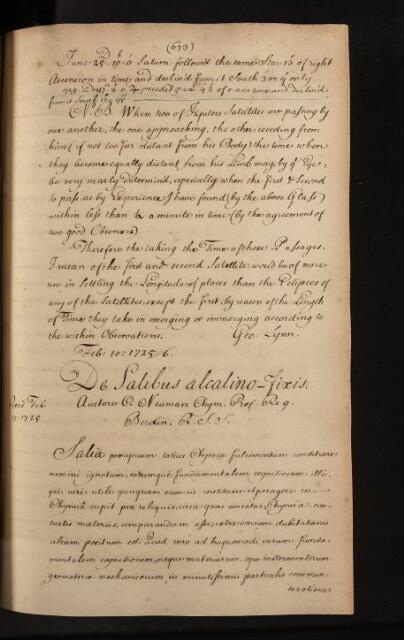 (673)
June 25.D 10.h 0' Saturn follow'd the same Star 13" of right
Ascension in time and declin'd from it South 3' or 4' only
from it South
N.B. When two of Jupiters Satellites are passing by
one another, the one approaching, the other receding from
him (if not too far distant from his Body) the time when
they become equally distant from his Limb may, by ye Eye,
be very nearly determin'd, especially when the first & Second
to pass, as by Experience I have found (by the above Glass)
within less than a minute in time (by the agreement of
two good Observers)
Therefore the taking the Time of those Passages,
I mean of the first and second Satellite would be of more
use in Settling the Longitude of places than the Eclipses of
any of the Satellites, except the first, by reason of the Length
of Time they take in emerging or immerging according to
the within Observations. Geo: Lynn.
Feb: 10: 1725/6.
De Salibus alcalino-fixis.
Read Feb.
1725
Auctore C. Neuman Chym. Prof. Reg.
Berolin. R. S. S.
Salia præcipuum totius Chymiæ fulcimentum constituere
nemini ignotum, eorumque fundamentalem cognitionem illi,
qui vere utile quicquam cum iis instituere et peragere in
Chymia cupit præ reliquis, circa quas versatur Chymia,
materiis, comparandam esse, extra omnem dubitationis
aleam positum est. Quod vero ad hujusmodi veram funda-
mentalem cognitionem, neque materiarum, ope instrumentorum
geometrico mechanicorum in minutissimis particulis commen-
suratione